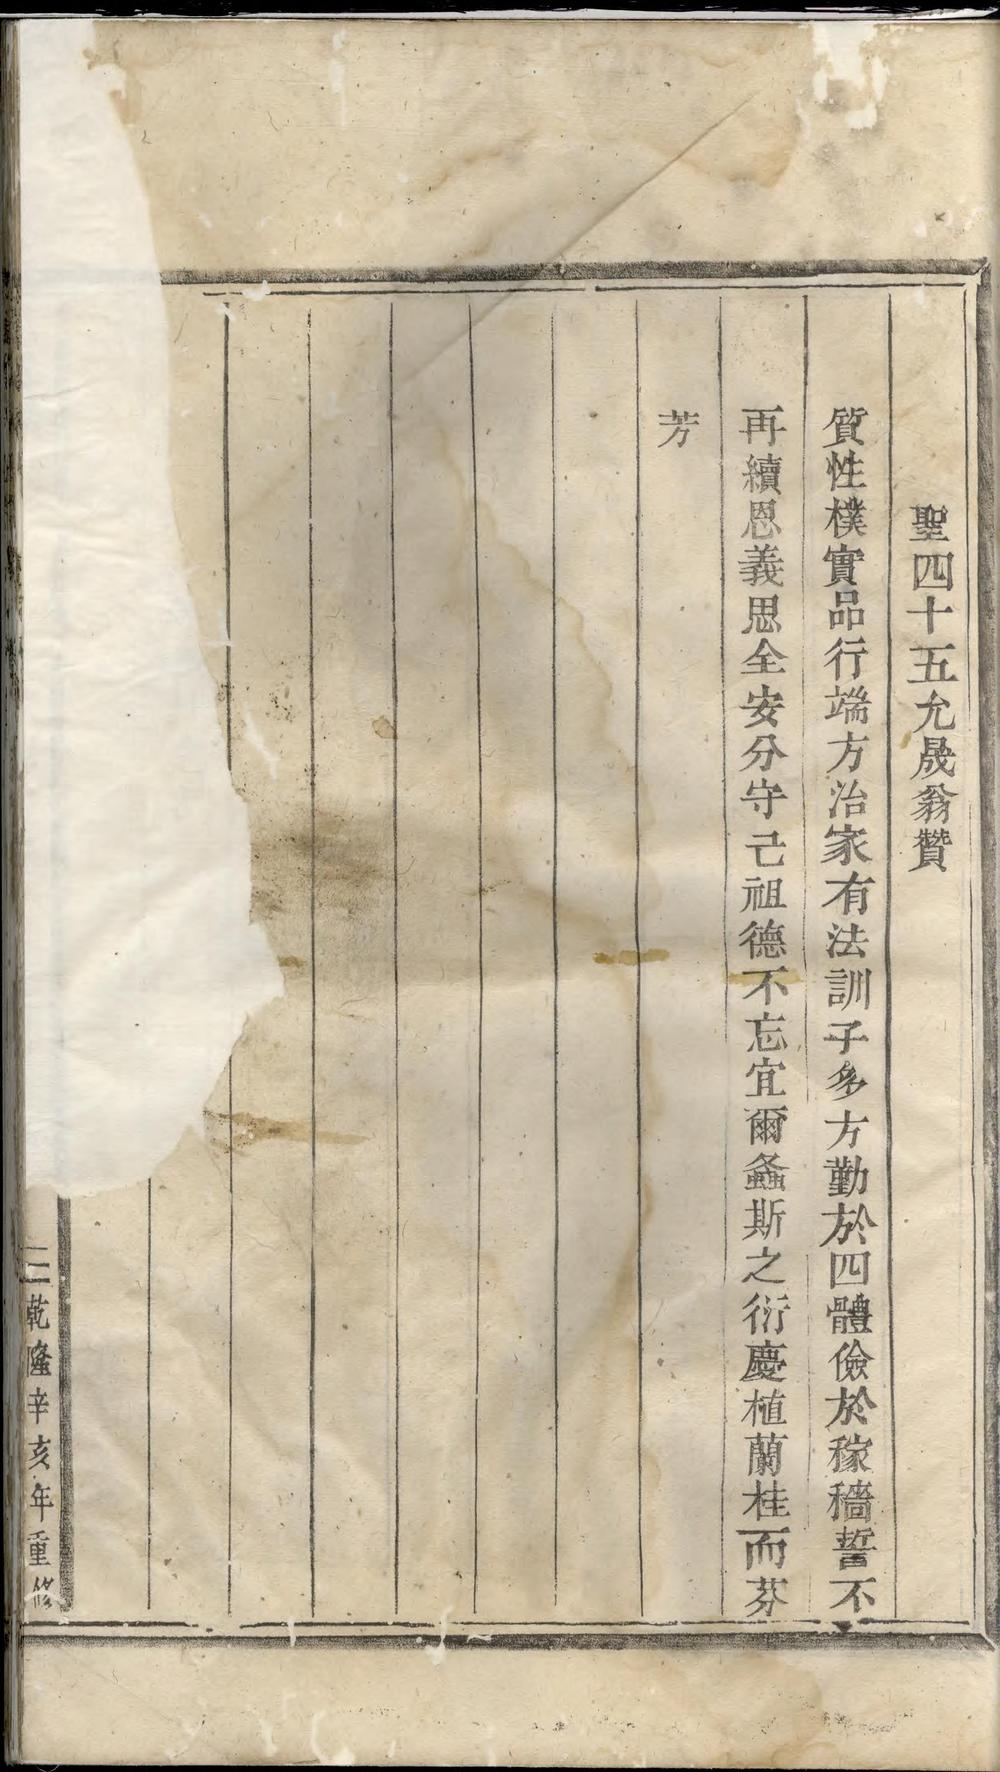 聖四十五允晟翁贊
質性樸實品行端方治家有法訓子多方勤於四體儉於稼穡誓不
再續恩義思全安分守己祖德不忘宜爾螽斯之衍慶植蘭桂而芬
芳
乾隆辛亥年重修